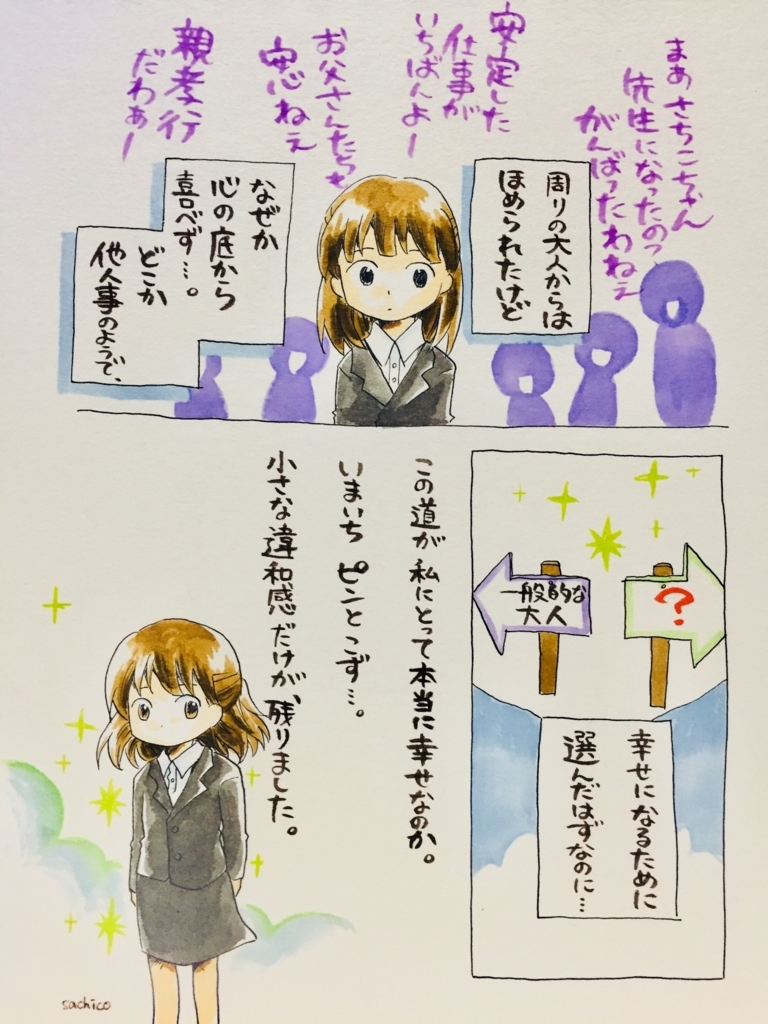 まあさちこちゃん
先生になったのっ
がんばったわねぇ
安定した
仕事が
いちばんよー
お父さんたちも
安心ねぇ
親孝行
だわぁー
周りの大人からは
ほめられたけど
なぜか
心の底から
喜べず…。
どこか
他人事のようで、
一般的な
大人
?
幸せになるために
選んだはずなのに…
この道が 私にとって本当に幸せなのか。
いまいち ピンとこず…。
小さな違和感だけが、残りました。
sachico